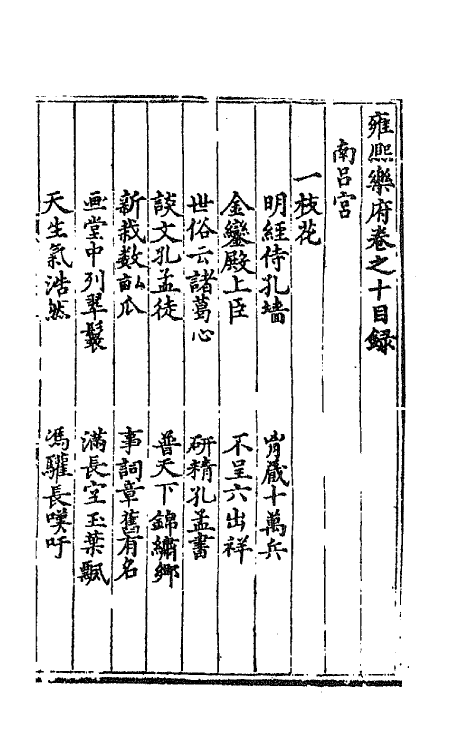 雍熙樂府卷之十目録
南吕宮
一枝花
明經侍孔墻　胷藏十萬兵
金鑾殿上臣　不呈六出祥
世俗云諸葛心　研精孔孟書
談文孔孟徒　普天下錦繡鄉
新栽數畝瓜　事詞章舊有名
画堂中列翠鬟　滿長空玉葉飄
天生氣浩然　馮驩長嘆吁